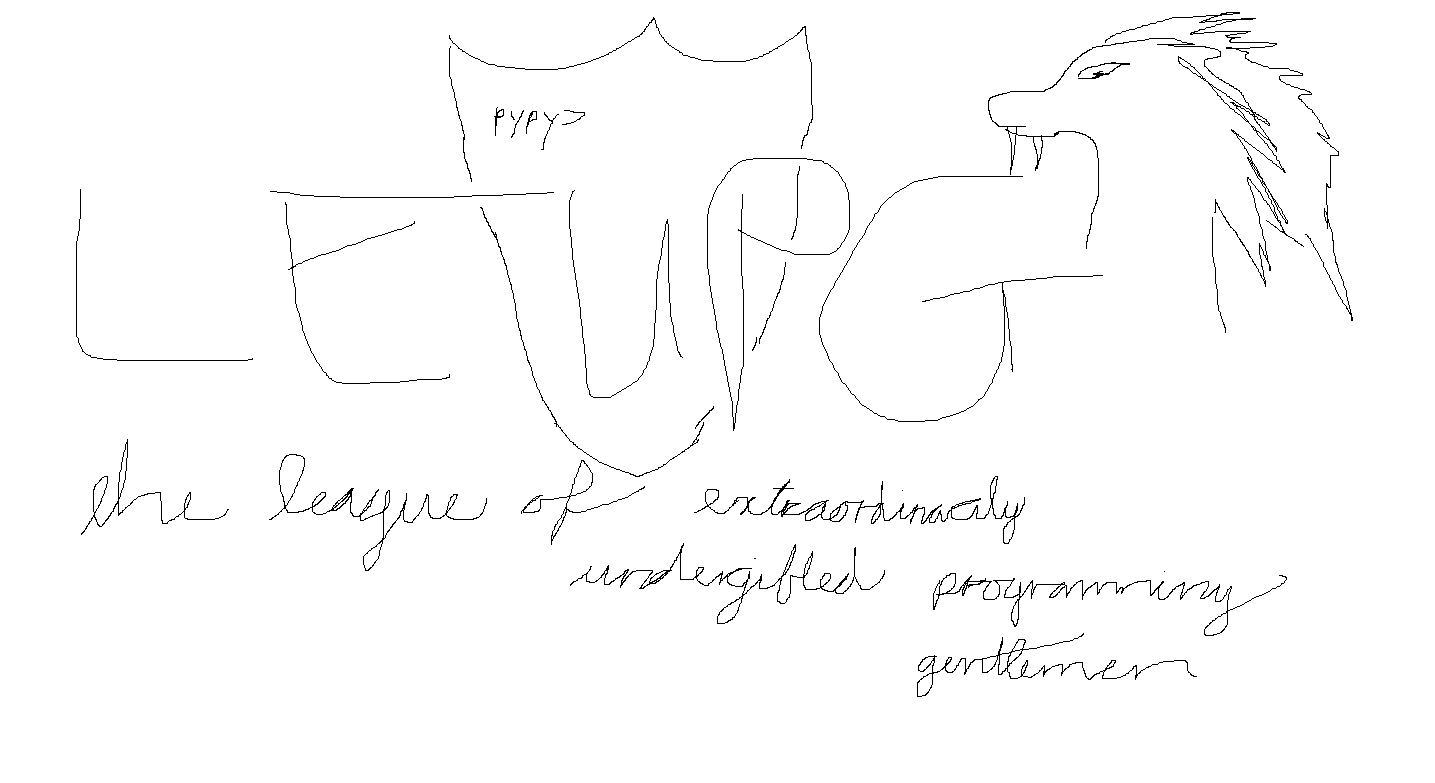 pypy>
LEUPG
the league of extraordinarily
undergifted programming
gentlemen